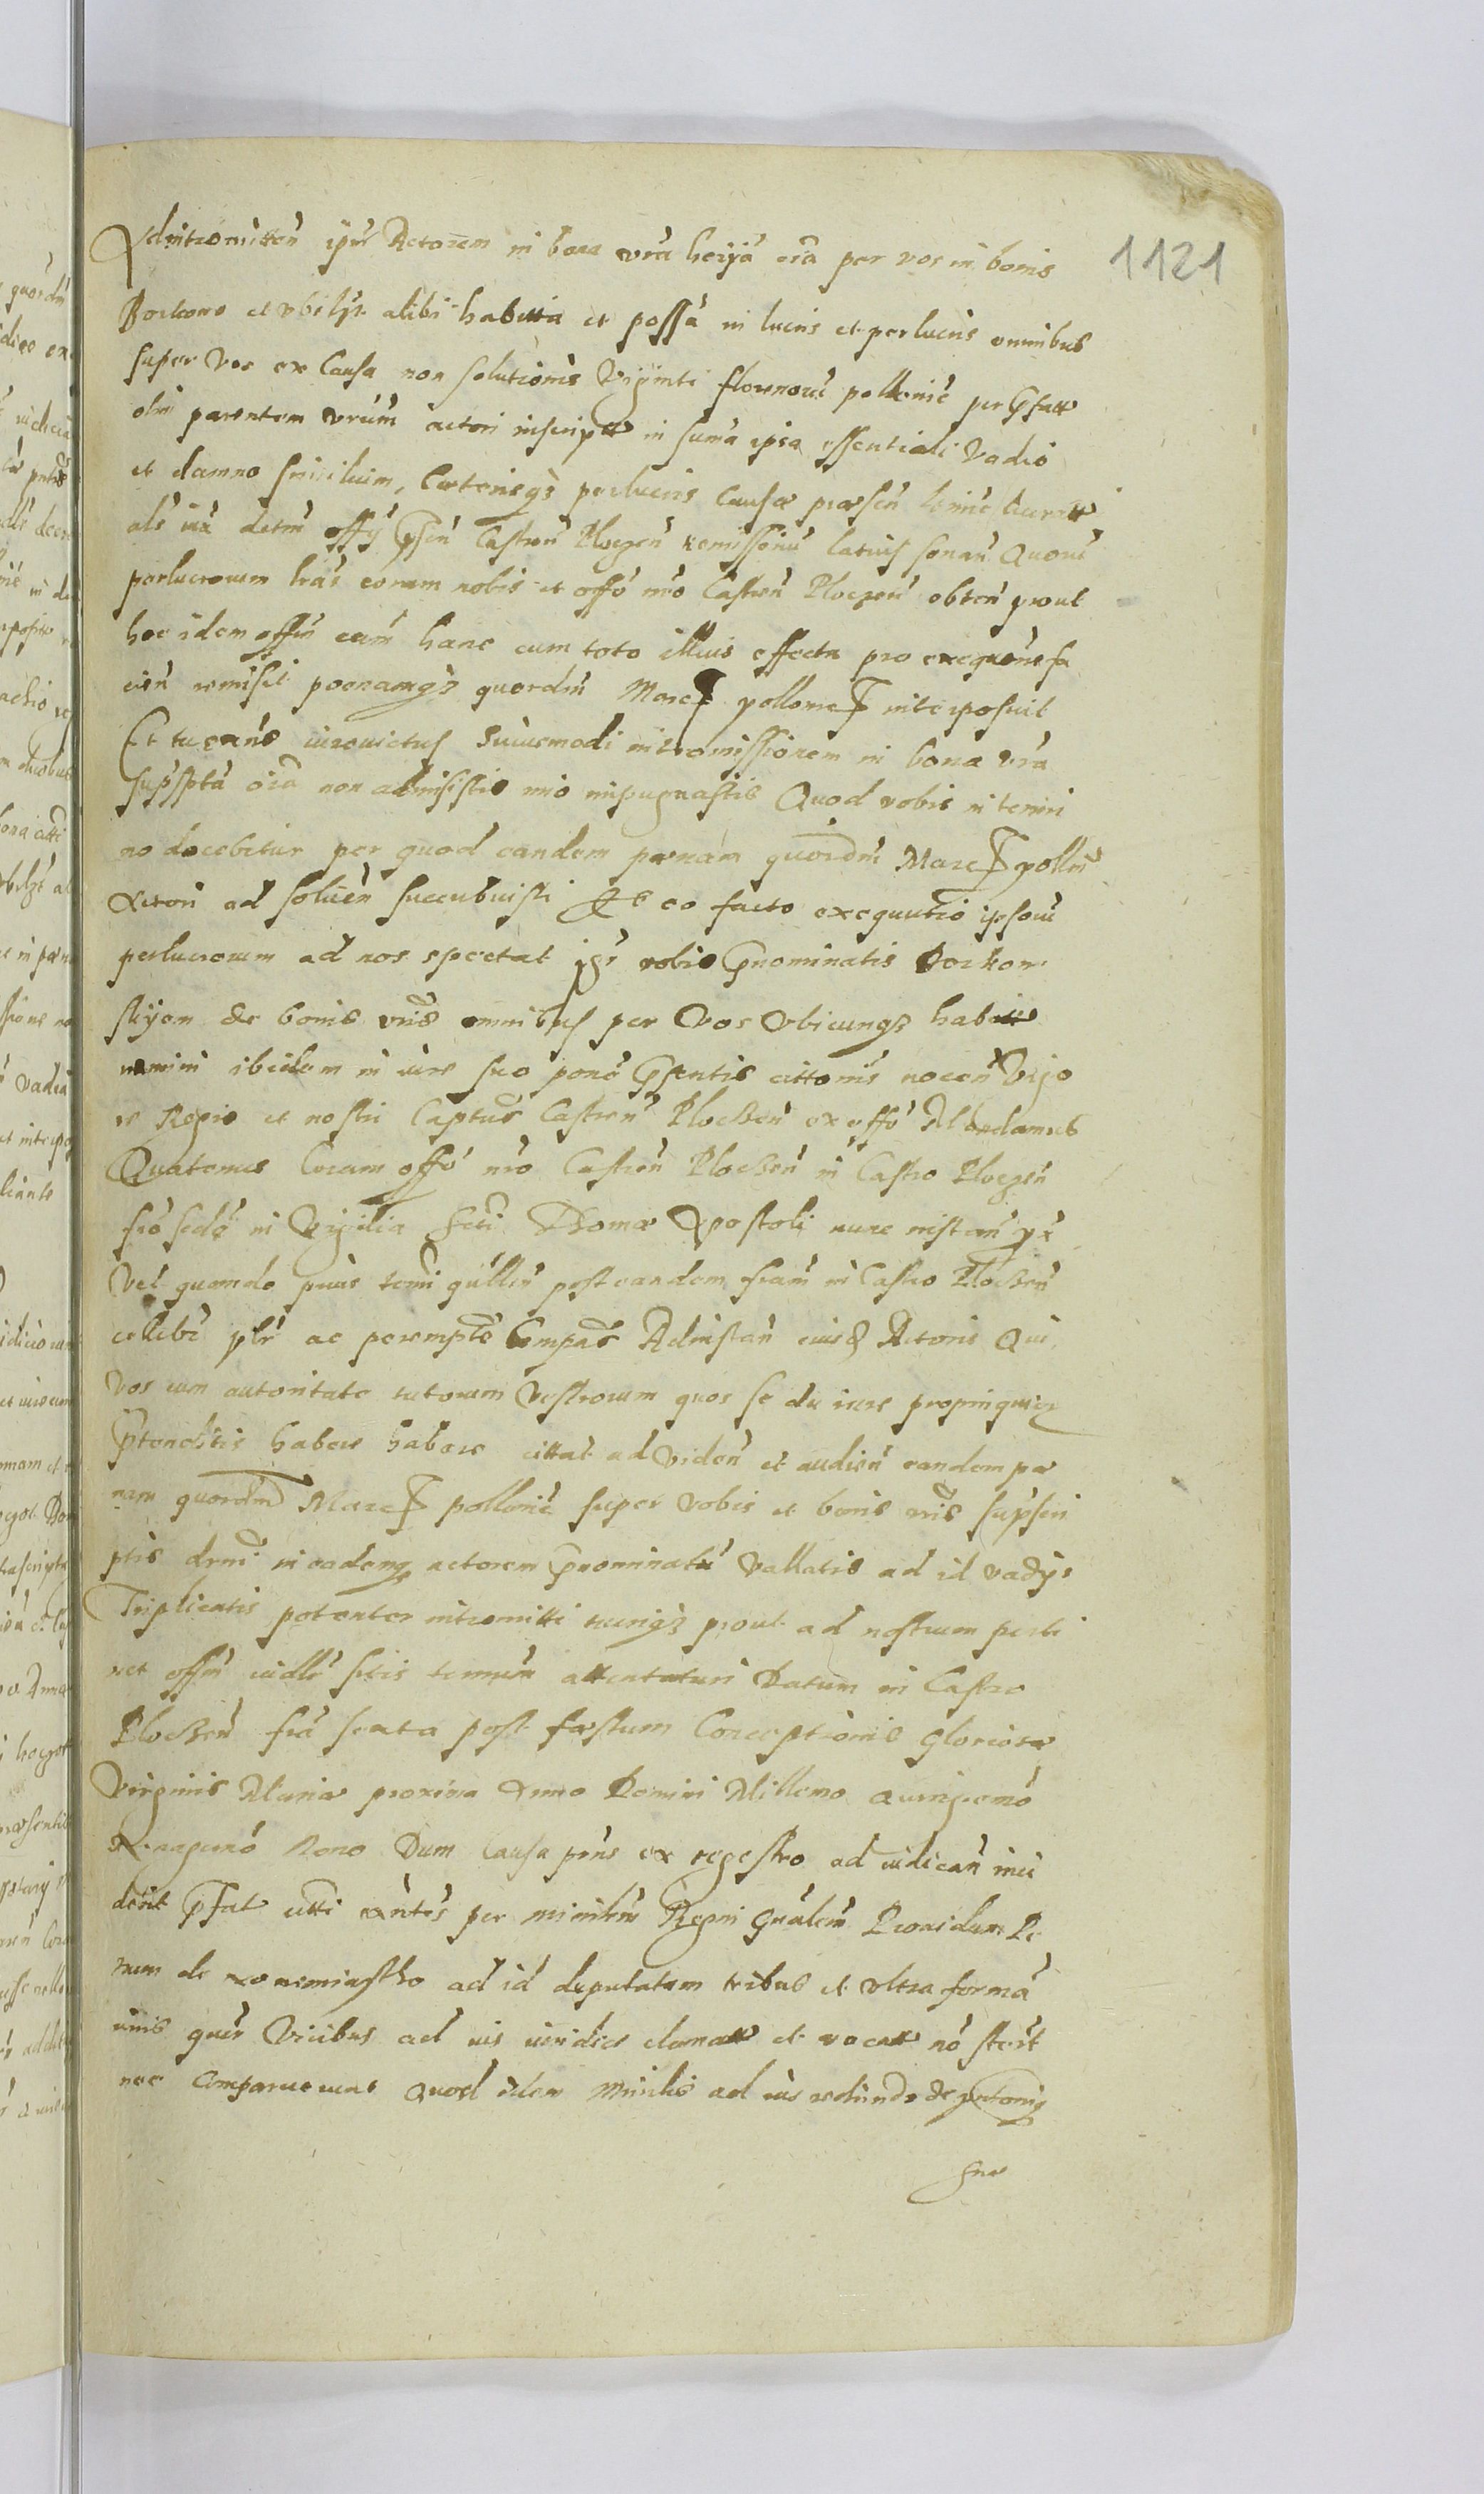 1121
Admitromitten ipm Actorem in bona vra herÿa oia per vos in bonis
Borkowo et vbilzt alibi habitta et possa in lucris et perlucris omnibus
super vos ex Causa non solutionis Viginti florenorũ pollonic per pfatt
olim parentem vrum actori inscriptt in suma ipsa essentiali Vadio
et damno similium, Cæterisqz perlucris Causæ præsen
als iux detm offÿ psen Castren Ploczen remissoriũ latius sonan Quorũ
perlucrorum lras coram nobis et offo nro Castren Ploczen obten prout
hoc idem offm cam hanc cum toto illius effectu pro exequne fa
cien remisit poenamqz quordm Marc pollonic interposuit
Et tu exns iureuictus huiusmodi intromissionem in bona vra
supspta oia non admisistis imo impugnastis Quod vobis in termi
no docebitur per quod eandem pœnam quordm Marc pollnc
Actori ad soluen succubuisti Et eo facto exequutio ipsorũ
perlucrorum ad nos spectat igr vobis pnominatis Borkow
skÿem de bonis vris omnibus per Vos Vbicunqz habitis
nemini ibidem in iure suo pono psentis cittonis nocen Vigo
re Regio et nostri Captus Castren Ploczen ex offo Mandamus
Quatenus Coram offo nro Castren Ploczen in Castro Ploczen
fria scda in Vigilia Scti Thomæ Apostoli nunc instan px
Vel quando prius termi qullm post eandem friam in Castro Ploczen
cellebr plr ac perempte Compas Ad instan eiusd Actoris Qui
vos cum autoritate tutorum Vestrorum quos se de iure propinqui
ptenditis habere habere cittat ad viden et audien eandem poe
nam quordm Marc pollonic super vobis et bonis vris supscri
ptis in eademqz actorem pnominatũ Vallatis ad id vadÿs
Triplicatis potenter intromitti prout ad nostrum perti
net offm iudlr sitis termin attentaturi Datum in Castro
Ploczen fria sexta post festum Conceptionis gloriosæ
Virginis Mariæ proxima Anno Domini Millemo Quingemo
Nonagemo Nono Dum Causa pns ex regestro ad iudican inci
derit pfat citti per ministm Regni gnalem Prouidum Pe
trum de ad id deputatum tribus et vltra forma
iuris quer Vicibus ad ius iuridice clamatt et vocatt no stetit
nec Comparuerunt Quod idem ministr ad ius
suæ